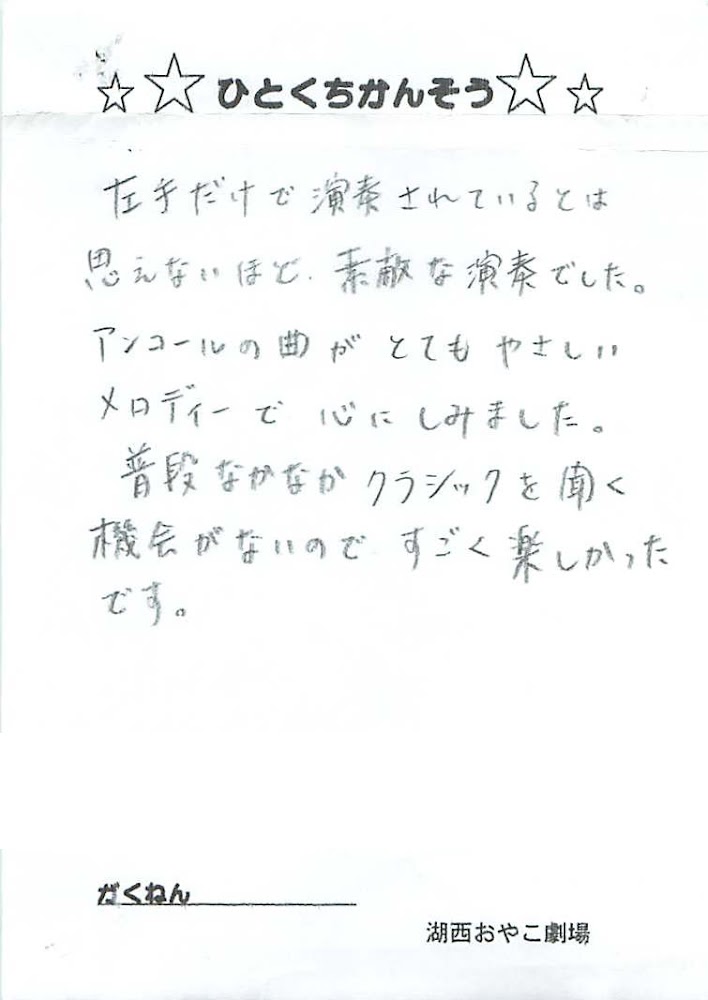 ☆☆ひとくちかんそう☆☆
左手だけで演奏されているとは
思えないほど、素敵な演奏でした。
アンコールの曲がとてもやさしい
メロディーで心にしみました。
普段なかなかクラシックを聞く
機会がないので、すごく楽しかった
です。
がくねん
湖西おやこ劇場